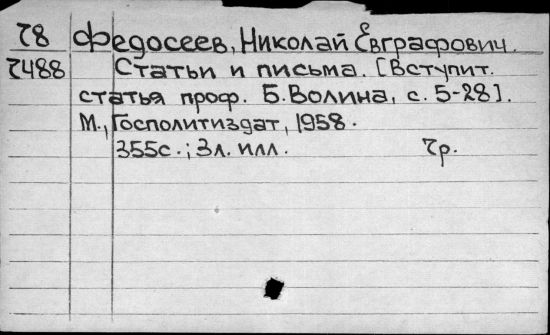 78 Федосеев, Николай Евграфович.
7488 Статьи и письма. [Вступит.
статья проф. Б. Волина, с. 5-28].
М., Госполитиздат, 1958.
355с.; 3л. илл. 7р.